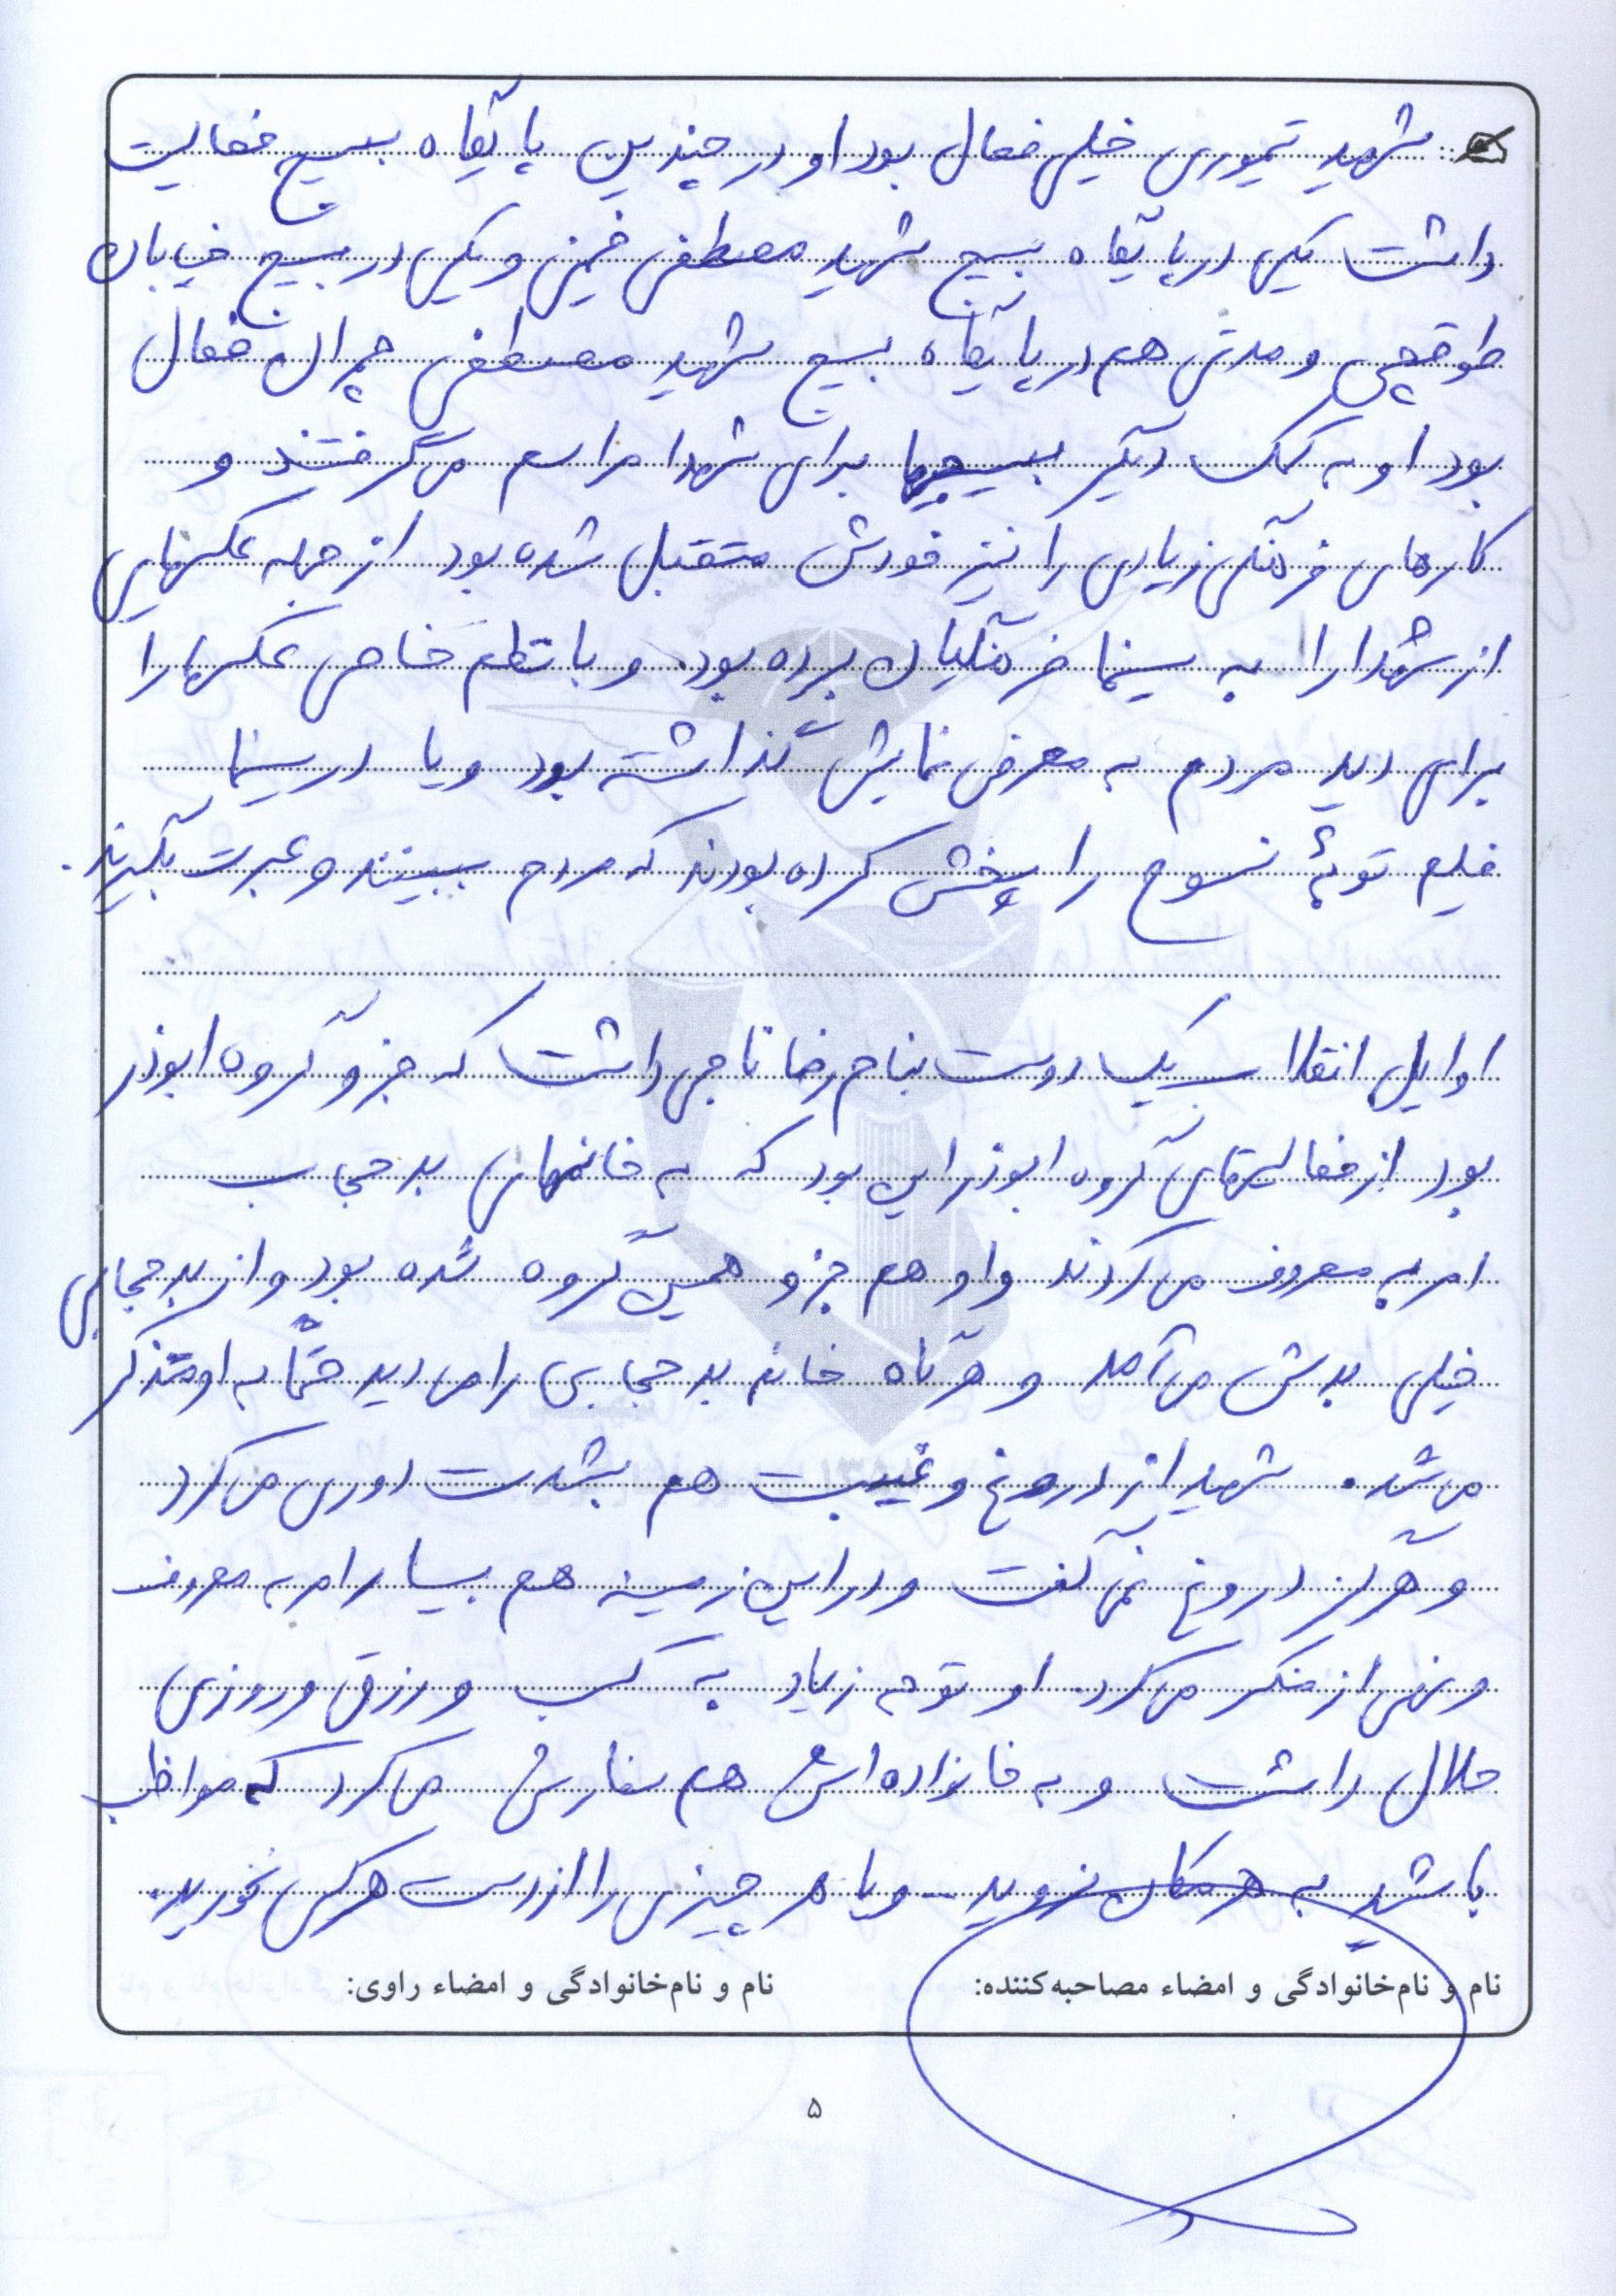 شهید تیموری خیلی فعال بود او در چندین پایگاه بسیج فعالیت
داشت یکی در پایگاه بسیج شهید مصطفی خمینی و یکی در بسیج خیابان
طوقچی و مدتی هم در پایگاه بسیج شهید مصطفی چمران فعال
بود او به کمک دیگر بسیجیها برای شهدا مراسم می‌گرفتند و
کارهای فرهنگی زیادی را نیز خودش متقبل شده بود از جمله عکسهایی
از شهدا را به سینما فرهنگیان برده بود. و با نظم خاصی عکسها را
برای دید مردم به معرض نمایش گذاشته بود و یا در سینما
فیلم توبهٔ نسوح را پخش کرده بودند که مردم ببینند و عبرت بگیرند.
اوایل انقلاب یک دوست بنام رضا تاجی داشت که جزو گروه ابوذر
بود از فعالیتهای گروه ابوذر این بود که به خانمهای بد حجاب
امر به معروف می‌کردند و او هم جزو همین گروه شده بود و از بد حجابی
خیلی بدش می‌آمد و هرگاه خانم بد حجابی را می دید حتماً به او متذکر
می شد. شهید از دروغ و غیبت هم بشدت دوری می‌کرد
و هرگز دروغ نمی‌گفت و در این زمینه هم بسیار امر به معروف
و نهی از منکر می‌کرد. او توجه زیاد به کسب و رزق و روزی
حلال داشت و به خانواده اش هم سفارش می‌کرد که مواظب
باشید به هر مکان نروید - و یا هر چیزی را از دست هر کس نخورید.
نام و نام‌خانوادگی و امضاء مصاحبه‌کننده: نام و نام‌خانوادگی و امضاء راوی:
۵